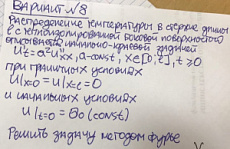 Вариант №8
Распределение температуры в стержне длины
l с теплоизолированной боковой поверхностью
описывается начально-краевой задачей
U't = a²U''xx, a-const, x∈[0,l], t≥0
при граничных условиях
U|x=0 = U|x=l = 0
и начальных условиях
U|t=0 = θ₀ (const)
Решить задачу методом Фурье